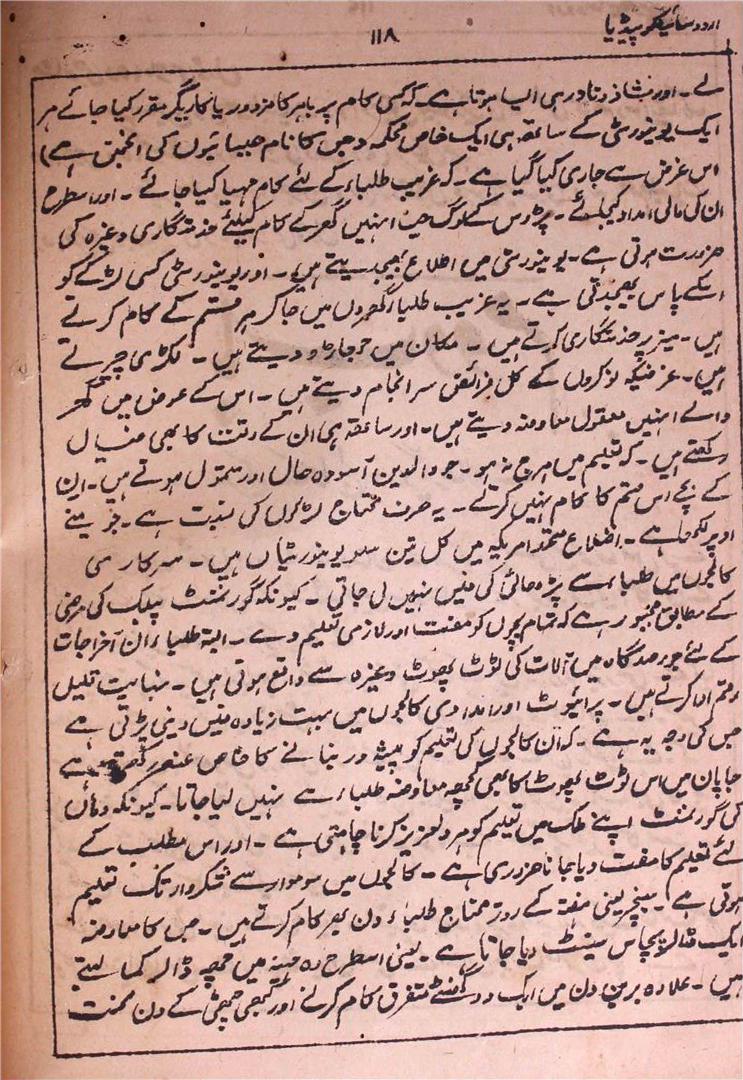 اردو سائیکلو پیڈیا
۱۱۸
لے ۔ اور نشاذ و نادر ہی ایسا ہوتا ہے ۔ کہ کسی کام پر باہر کا مزدور یا کاریگر مقرر کیا جائے ہر
ایک یونیورسٹی کے ساتھ ہی ایک خاص محکمہ (جس کا نام عیسائیوں کی انجمن ہے)
اس غرض سے جاری کیا گیا ہے ۔ کہ غریب طلباء کے لئے کام مہیا کیا جائے ۔ اور اسطرح
ان کی مالی امداد کیجائے ۔ پڑوس کے لوگ جب انہیں گھر کے کام کیلئے خدمتگاری وغیرہ کی
ضرورت ہوتی ہے ۔ یونیورسٹی میں اطلاع بھیجدیتے ہیں ۔ اور یونیورسٹی کسی لڑکے کو
انکے پاس بھیجدیتی ہے ۔ یہ غریب طلباء گھروں میں جا کر ہر قسم کے کام کرتے
ہیں ۔ میز پر خدمتگاری کرتے ہیں ۔ مکان میں جھاڑو دیتے ہیں ۔ لکڑی چیرتے
ہیں ۔ غرضیکہ نوکروں کے کل فرائض سر انجام دیتے ہیں ۔ اس کے عوض میں گھر
والے انہیں معقول معاوضہ دیتے ہیں ۔ اور ساتھ ہی ان کے وقت کا بھی خیال
رکھتے ہیں ۔ کہ تعلیم میں ہرج نہ ہو ۔ جو والدین آسودہ حال اور متمول ہوتے ہیں ۔ ان
کے بچے اس قسم کا کام نہیں کرتے ۔ یہ صرف محتاج لڑکوں کی نسبت ہے ۔ جو مینے
اوپر لکھا ہے ۔ اضلاع متحدہ امریکہ میں کل تین سو یونیورسٹیاں ہیں ۔ سرکاری
کالجوں میں طلباء سے پڑھائی کی فیس نہیں لی جاتی ۔ کیونکہ گورنمنٹ پبلک کی مرضی
کے مطابق مجبور ہے کہ تمام بچوں کو مفت اور لازمی تعلیم دے ۔ البتہ طلباء ان آخراجات
کے لئے جو رصدگاہ میں آلات کی ٹوٹ پھوٹ وغیرہ سے واقع ہوتی ہیں ۔ نہایت قلیل
رقم ادا کرتے ہیں ۔ پرائیوٹ اور امدادی کالجوں میں بہت زیادہ فیس دینی پڑتی ہے
جس کی وجہ یہ ہے ۔ کہ ان کالجوں کی تعلیم کو پیشہ ور بنانے کا خاص عنصر ہے
جاپان میں اس ٹوٹ پھوٹ کا بھی کچھ معاوضہ طلباء سے نہیں لیا جاتا ۔ کیونکہ وہاں
کی گورنمنٹ اپنے ملک میں تعلیم کو ہردلعزیز کرنا چاہتی ہے ۔ اور اس مطلب کے
لئے تعلیم کا مفت دیا جانا ضروری ہے ۔ کالجوں میں سوموار سے شکروار تک تعلیم
ہوتی ہے ۔ سنیچر یعنی ہفتہ کے روز محتاج طلباء دن بھر کام کرتے ہیں ۔ جس کا معاوضہ
ایک ڈالر پچاس سینٹ دیا جاتا ہے ۔ یعنی اسطرح وہ مہینہ میں چھ ڈالر کما لیتے
ہیں ۔ علاوہ بریں دن میں ایک دو گھنٹے متفرق کام کرنے اور کبھی چھٹی کے دن محنت